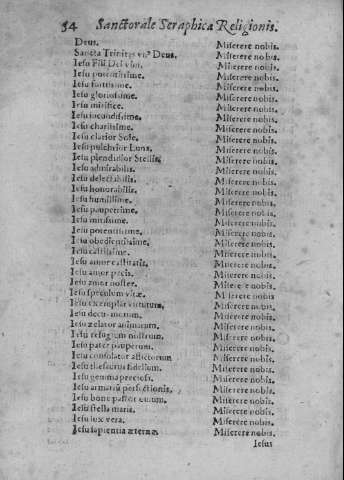 54 Sanctorale Seraphicæ Religionis.
Deus. Miserere nobis.
Sancta Trinitas vnº Deus. Miserere nobis.
Iesu Fili Dei viui. Miserere nobis.
Iesu potentissime. Miserere nobis.
Iesu fortissime. Miserere nobis.
Iesu gloriosissime. Miserere nobis.
Iesu mirifice. Miserere nobis.
Iesu iucundissime. Miserere nobis.
Iesu charissime. Miserere nobis.
Iesu clarior Sole. Miserere nobis.
Iesu pulchrior Luna. Miserere nobis.
Iesu splendidior Stellis. Miserere nobis.
Iesu admirabilis. Miserere nobis.
Iesu delectabilis. Miserere nobis.
Iesu honorabilis. Miserere nobis.
Iesu humillime. Miserere nobis.
Iesu pauperrime. Miserere nobis.
Iesu mitissime. Miserere nobis.
Iesu patientissime. Miserere nobis.
Iesu obedientissime. Miserere nobis.
Iesu castissime. Miserere nobis.
Iesu amor castitatis. Miserere nobis.
Iesu amor pacis. Miserere nobis.
Iesu amor noster. Miserere nobis.
Iesu speculum vitæ. Miserere nobis
Iesu exemplar virtutum. Miserere nobis.
Iesu decus morum. Miserere nobis.
Iesu zelator animarum. Miserere nobis.
Iesu refugium nostrum. Miserere nobis.
Iesu pater pauperum. Miserere nobis.
Iesu consolator afflictorum Miserere nobis.
Iesu thesaurus fidelium. Miserere nobis.
Iesu gemma preciosa. Miserere nobis.
Iesu armariū perfectionis. Miserere nobis.
Iesu bone pastor ouium. Miserere nobis.
Iesu stella maris. Miserere nobis.
Iesu lux vera. Miserere nobis.
Iesu sapientia æterna. Miserere nobis.
Iesus